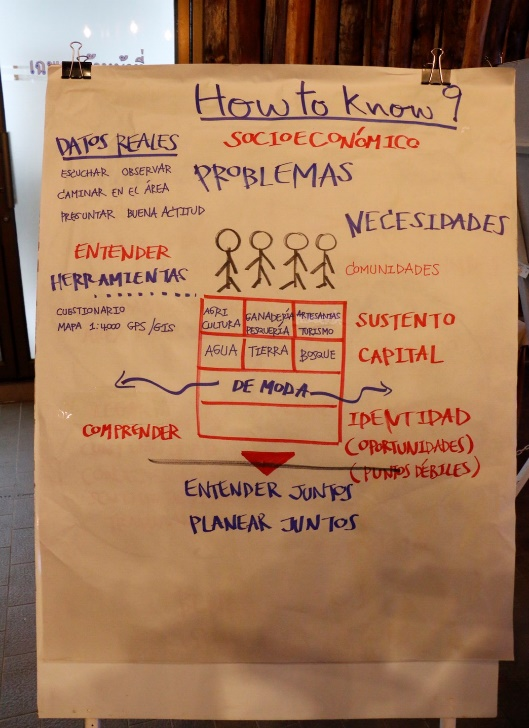 How to know?
DATOS REALES
SOCIOECONÓMICO
ESCUCHAR OBSERVAR
CAMINAR EN EL ÁREA
PREGUNTAR BUENA ACTITUD
PROBLEMAS
NECESIDADES
ENTENDER
HERRAMIENTAS
COMUNIDADES
CUESTIONARIO
MAPA 1:4000 GPS/GIS
AGRI
CULTURA
GANADERÍA
PESQUERÍA
ARTESANIAS
TURISMO
SUSTENTO
AGUA
TIERRA
BOSQUE
CAPITAL
DE MODA
COMPRENDER
IDENTIDAD
(OPORTUNIDADES)
(PUNTOS DÉBILES)
ENTENDER JUNTOS
PLANEAR JUNTOS